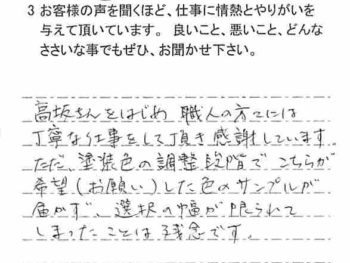 3 お客様の声を聞くほど、仕事に情熱とやりがいを
与えて頂いています。 良いこと、悪いこと、どんな
ささいな事でもぜひ、お聞かせ下さい。
高坂さんをはじめ 職人の方々には
丁寧な仕事をして頂き感謝しています。
ただ、塗装色の調整段階で こちらが
希望(お願い)した色のサンプルが
届かず、選択の幅が限られて
しまったことは残念です。